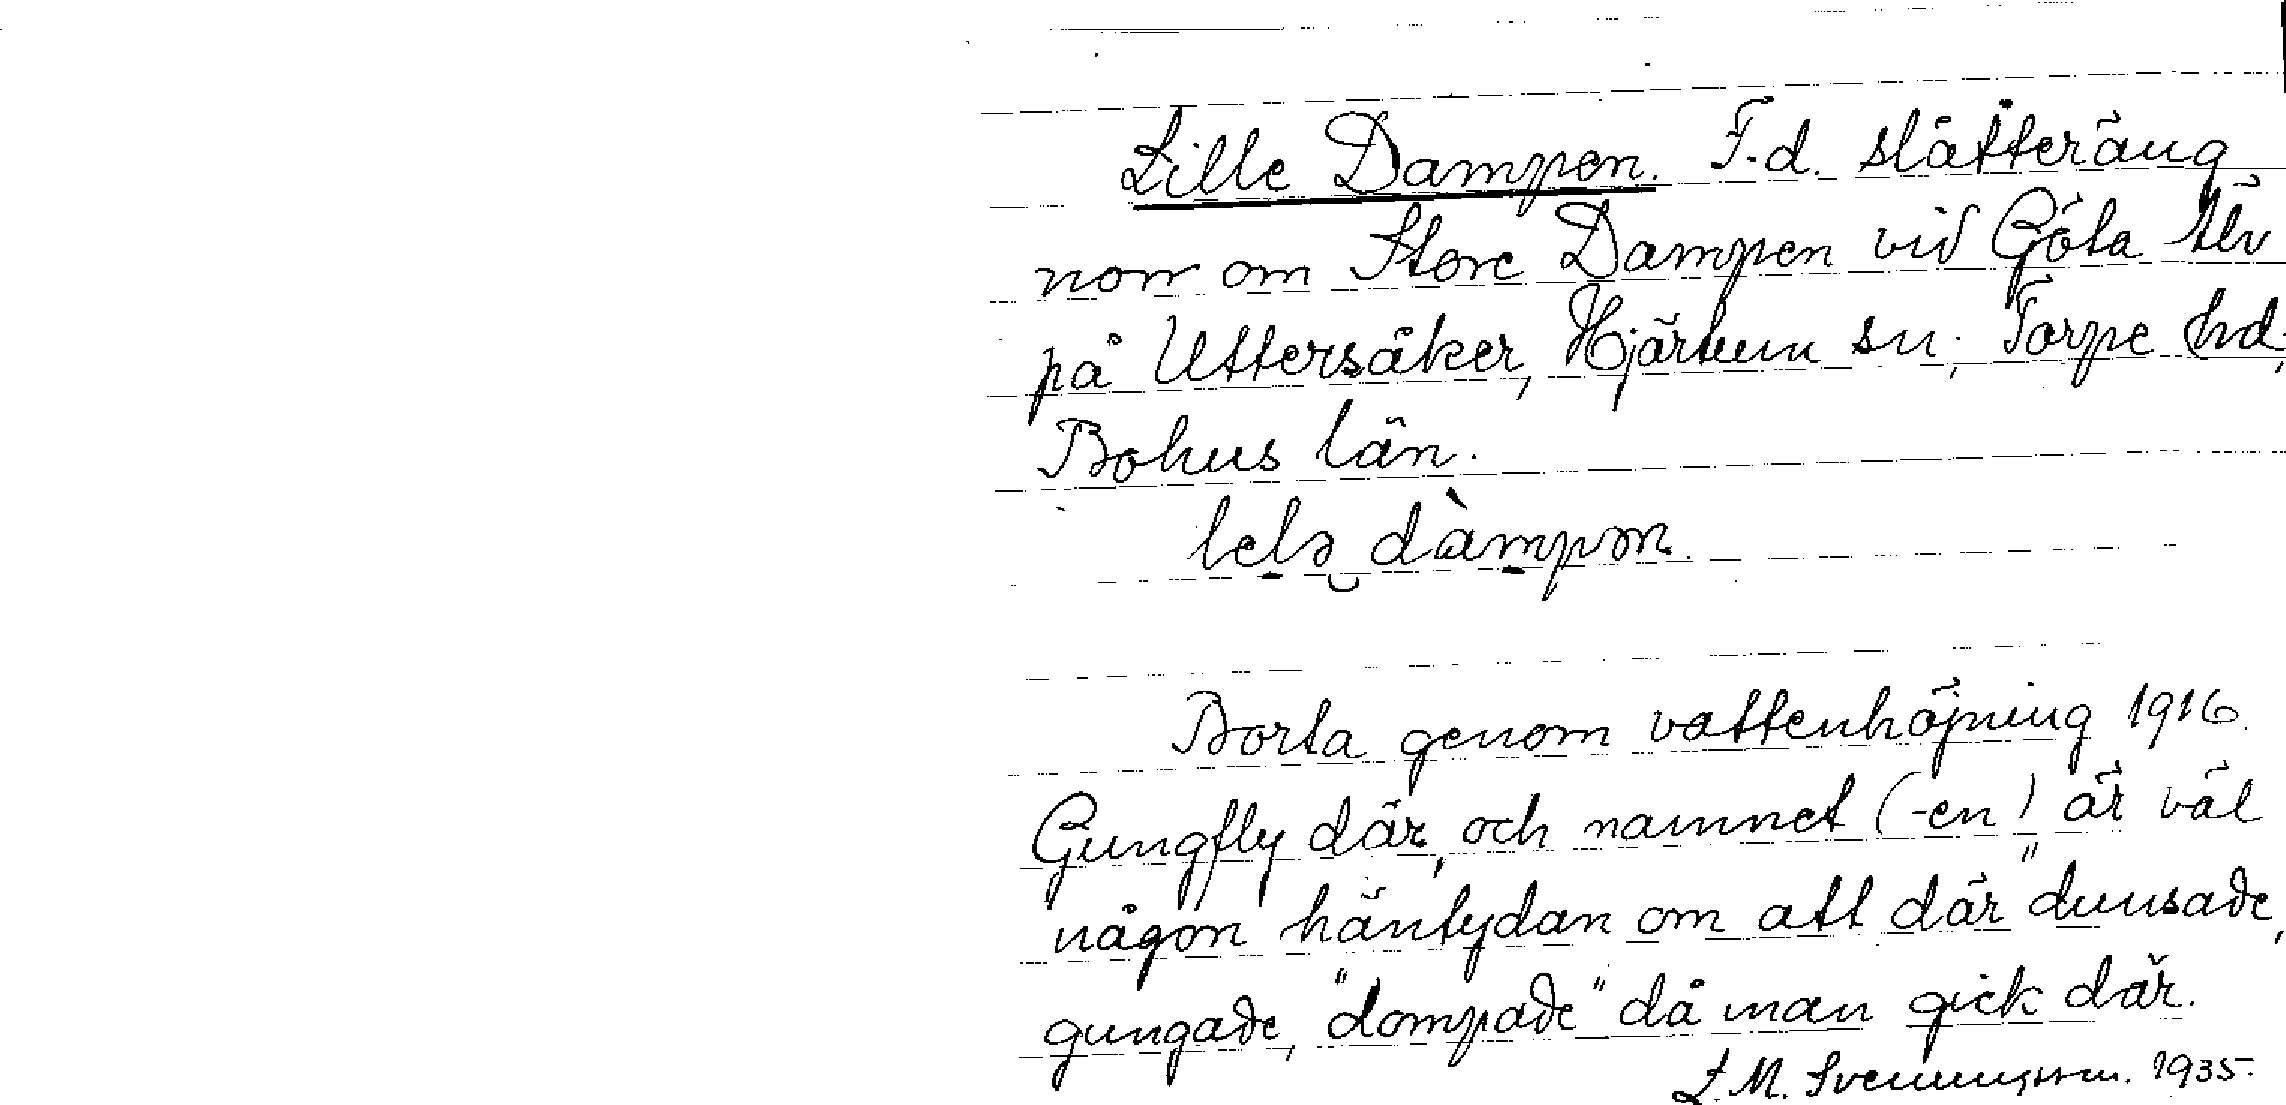 Lille Dampen. F.d. slåtteräng
norr om Store Dampen vid Göta älv
på Uttersäker, Hjärtum sn; Torpe hd,
Bohus län.
lelə dàmpən.
Borta genom vattenhöjning 1916.
Gungfly där, och namnet (-en) är väl
någon häntydan om att där "dunsade,
gungade, "dompade" då man gick där.
L. M. Svenungsson. 1935.